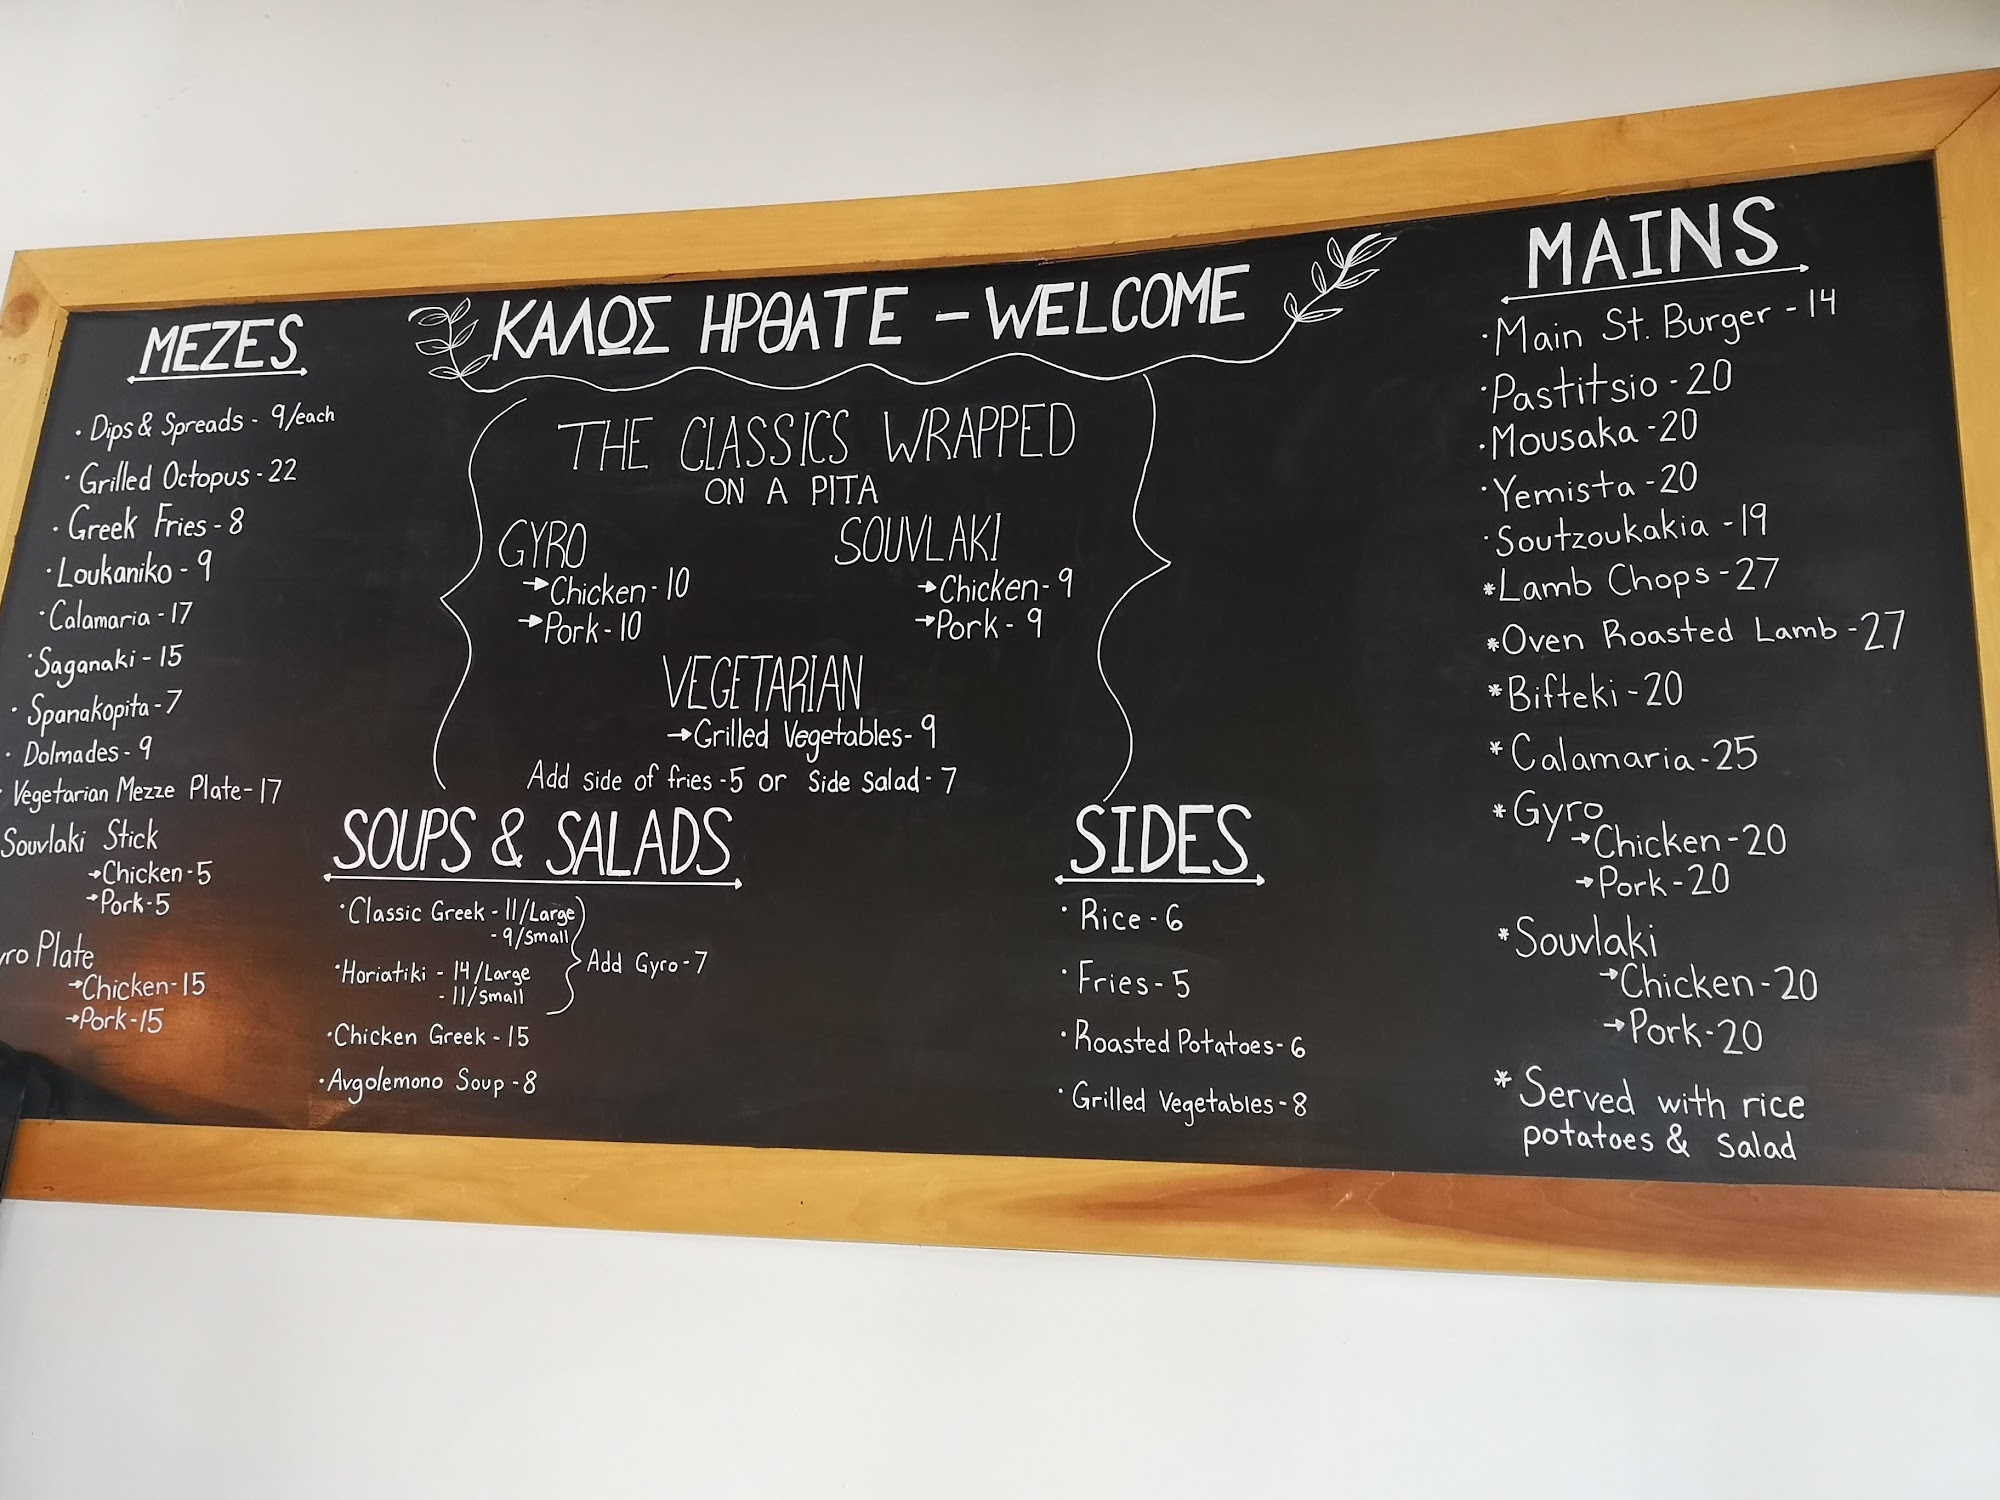 ΚΑΛΩΣ ΗΡΘΑΤΕ - WELCOME
MEZES
· Dips & Spreads - 9/each
· Grilled Octopus - 22
· Greek Fries - 8
· Loukaniko - 9
· Calamaria - 17
· Saganaki - 15
· Spanakopita - 7
· Dolmades - 9
· Vegetarian Mezze Plate - 17
Souvlaki Stick
→ Chicken - 5
→ Pork - 5
yro Plate
→ Chicken - 15
→ Pork - 15
THE CLASSICS WRAPPED
ON A PITA
GYRO
→ Chicken - 10
→ Pork - 10
SOUVLAKI
→ Chicken - 9
→ Pork - 9
VEGETARIAN
→ Grilled Vegetables - 9
Add side of fries - 5 or Side Salad - 7
SOUPS & SALADS
· Classic Greek - 11/Large
- 9/Small
· Horiatiki - 14/Large
- 11/Small
Add Gyro - 7
· Chicken Greek - 15
· Avgolemono Soup - 8
SIDES
· Rice - 6
· Fries - 5
· Roasted Potatoes - 6
· Grilled Vegetables - 8
MAINS
· Main St. Burger - 14
· Pastitsio - 20
· Mousaka - 20
· Yemista - 20
· Soutzoukakia - 19
* Lamb Chops - 27
* Oven Roasted Lamb - 27
* Bifteki - 20
* Calamaria - 25
* Gyro
→ Chicken - 20
→ Pork - 20
* Souvlaki
→ Chicken - 20
→ Pork - 20
* Served with rice
potatoes & salad